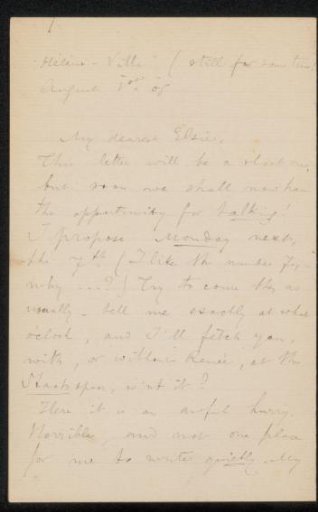 1.
Hélène-Ville (still for some time)
August 1st. 05
My dearest Elsie,
This letter will be a short one,
but soon we shall now have
the opportunity for talking!
I propose Monday next,
the 7th (I like the number 7,
why ...?) Try to come
usually. tell me exactly at what
o'clock, and I'll fetch you,
with, or without Renée, at the
isn't it?
Here it is an awful hurry.
Horrible, and not one place
for me to write quietly. My